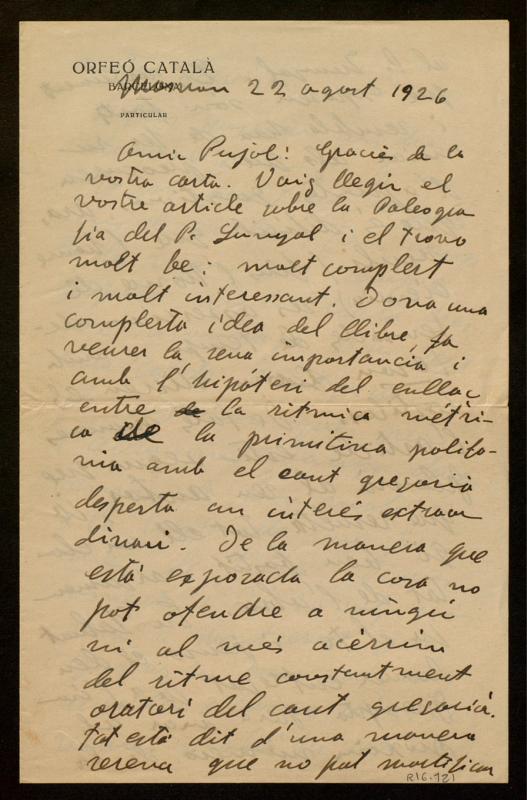 ORFEÓ CATALÀ
BARCELONA
22 agost 1926
PARTICULAR
Amic Pujol: Gracies de la
vostra carta. Vaig llegir el
vostre article sobre la Paleogra
fia del P. Sunyol i el trovo
molt be: molt complert
i molt interessant. Dona una
complerta idea del llibre, fa
veurer la seva importancia i
amb l'hipótesi del enllaç
entre de la ritmica métri-
ca de la primitiva polifo-
nia amb el cant gregoriá
desperta un interés extraor
dinari. De la manera que
está exposada la cosa no
pot ofendre a ningú
ni al més acèrrim
del ritme constantment
oratori del cant gregoriá.
Tot está dit d'una manera
serena que no pot mortificar
R16.721